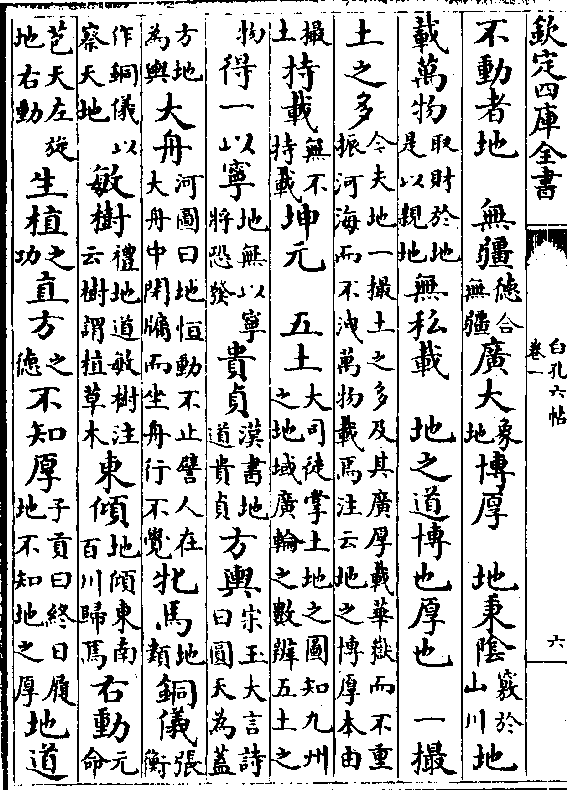 欽定四庫全書
白孔六帖
卷一
六
不動者地 無疆德合無疆廣大象地博厚 地秉陰竅於山川地
載萬物取財於地是以親地無私載 地之道博也厚也 一撮
土之多今夫地一撮土之多及其廣厚載華嶽而不重振河海而不洩萬物載焉注云地之博厚本由
撮土持載無不持載坤元 五土大司徒掌土地之圖知九州之地域廣輪之數辨五土之
物得一以寧地無以寧將恐發貴貞漢書地道貴貞方輿宋玉大言詩曰圓天為蓋
方地為輿大舟河圖曰地恒動不止譬人在大舟中閉牖而坐舟行不覺牝馬地類銅儀張衡
作銅儀以察天地敏樹禮地道敏樹注云樹謂植草木東傾地傾東南百川歸焉右動元命
苞天左旋地右動生植之功直方之德不知厚子貢曰終日履地不知地之厚地道